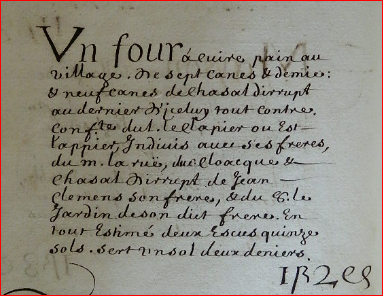 Vn four à cuire pain au
village. De sept canes & demie:
& neuf canes de chasal dirrupt
au dernier D'iceluy tout contre.
Confte du t. le Clapier ou Est-
lappier, Indiuis auec ses freres,
du m. la ruë, du Cloacque &
Chasal Dirrupt de Jean
Clemens son frere, & du C. le
Jardin de son dict frere. En
tout Estimé deux Escus quinze
sols. sert vn sol deux deniers.